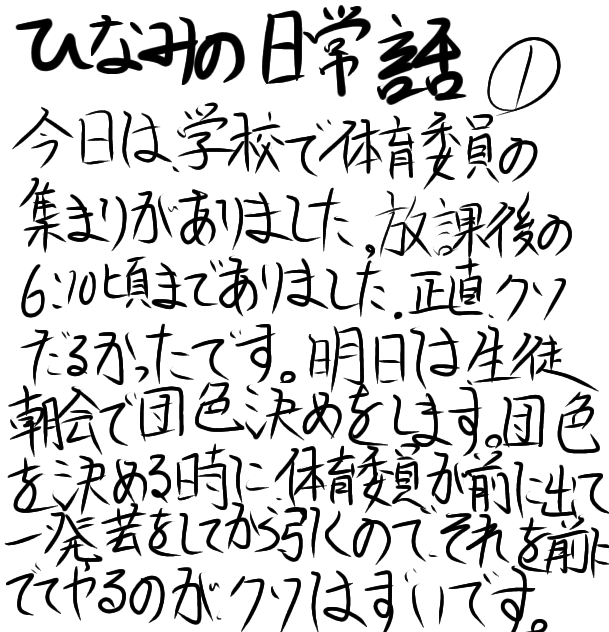 ひなみの日常話 ①
今日は、学校で体育委員の
集まりがありました。放課後の
6:10頃まであリました。正直、クソ
だるかったです。明日は生徒
朝会で団色決めをします。団色
を決める時に、体育委員が前に出て
一発芸をしてから引くので、それを前に
でてやるのがクソはずいです。